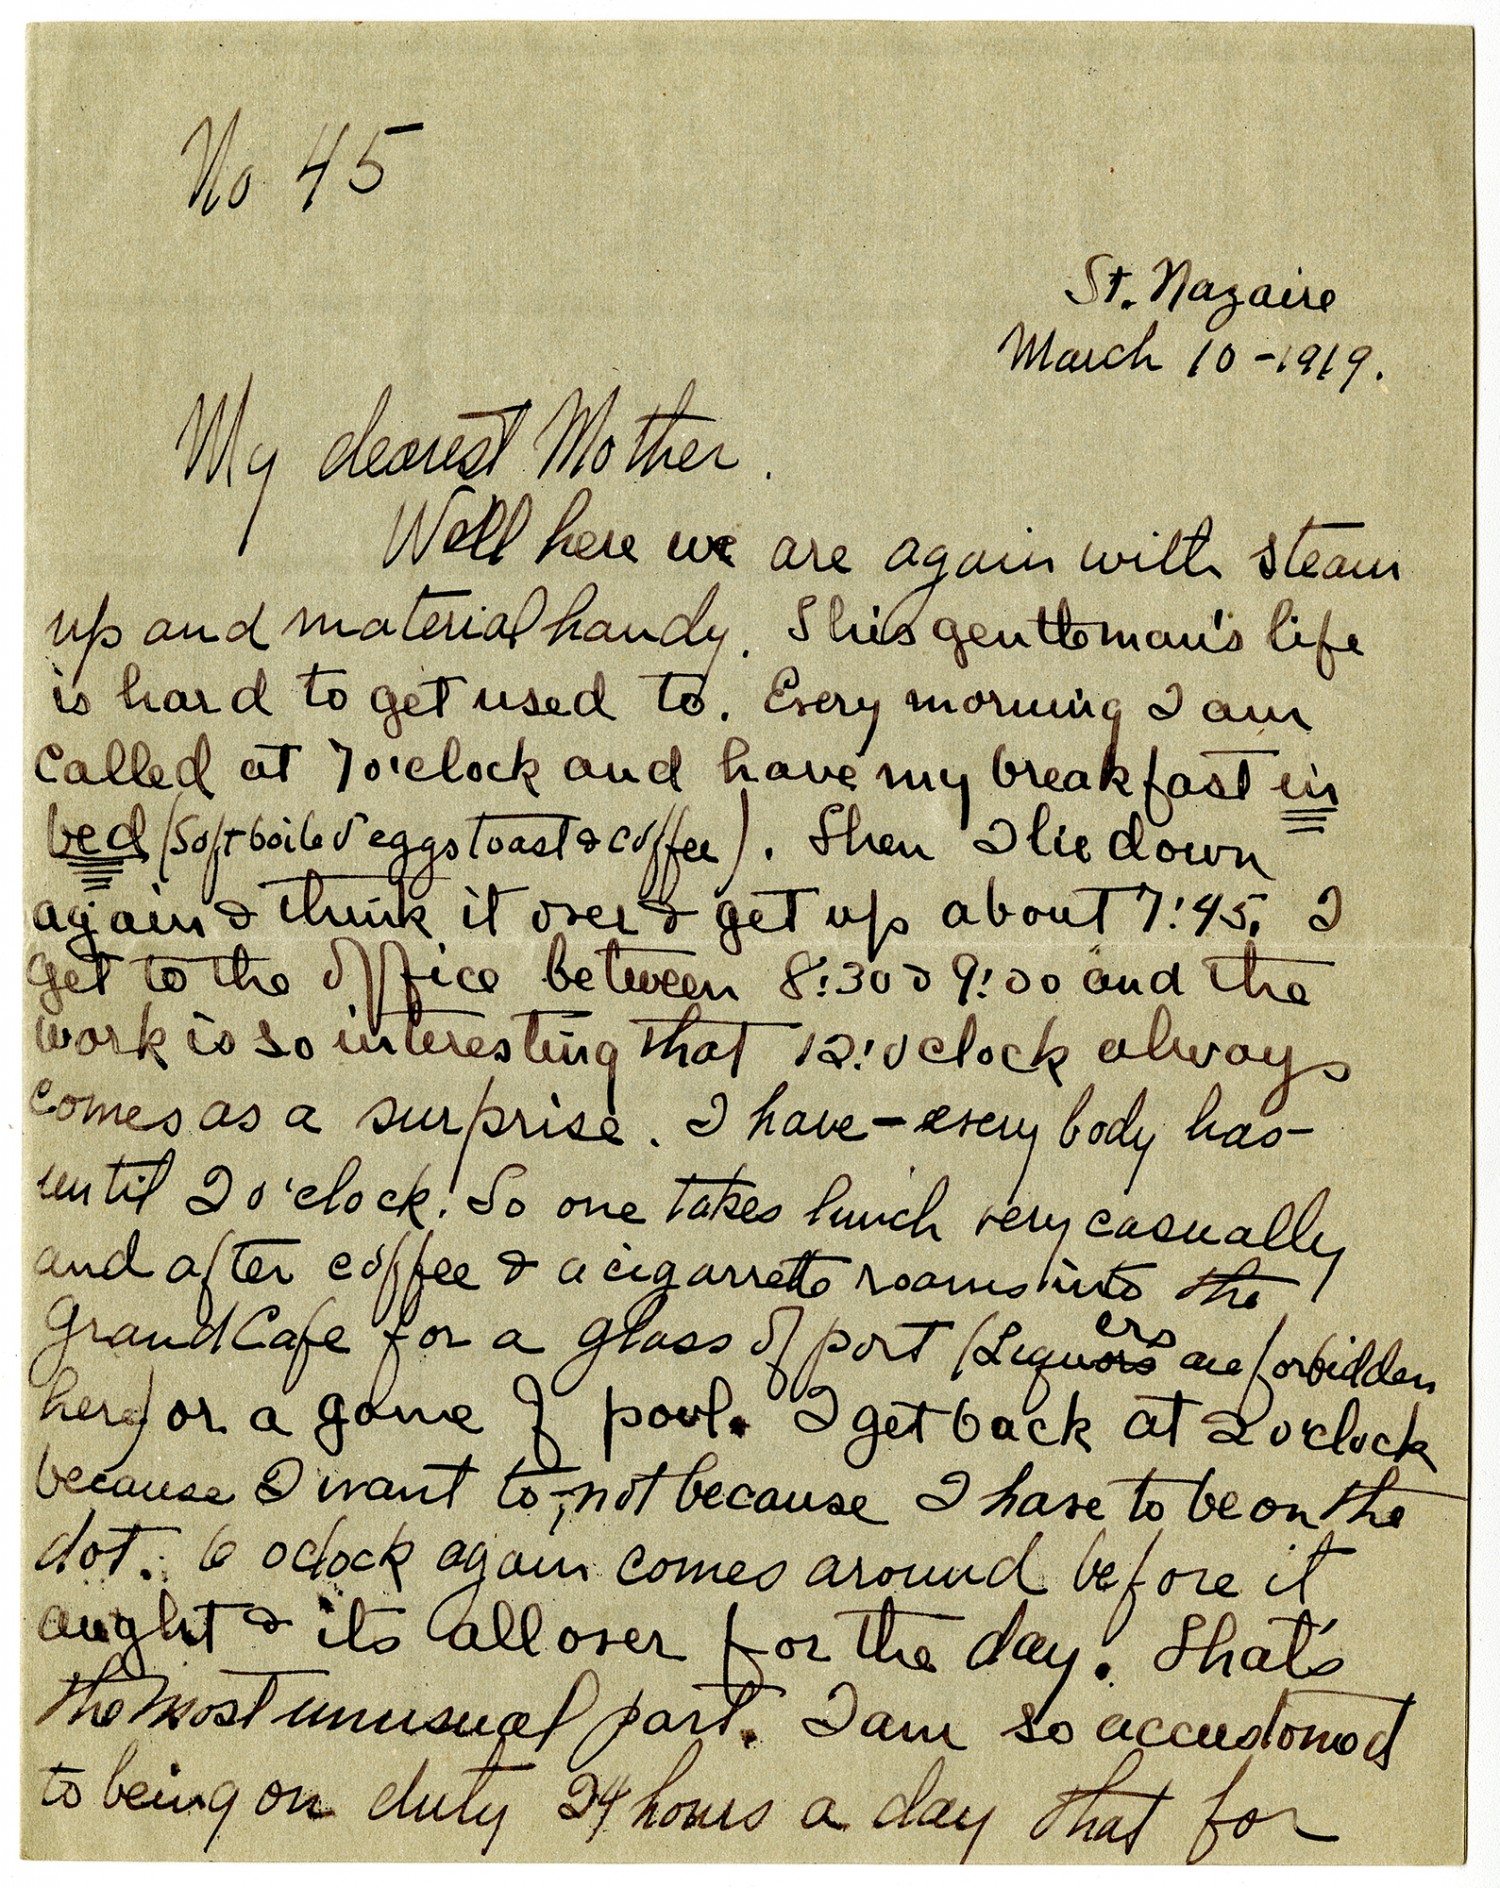 No 45
St. Nazaire
March 10-1919.
My dearest Mother.
Well here we are again with steam
up and material handy. This gentleman's life
is hard to get used to. Every morning I am
called at 7 o'clock and have my breakfast in
bed (soft boiled eggs toast & coffee). Then I lie down
again & think it over & get up about 7:45. I
get to the office between 8:30 & 9:00 and the
work is so interesting that 12:oclock always
comes as a surprise. I have - every body has -
until 2 o'clock. So one takes lunch very casually
and after coffee & a cigarrette roams into the
Grand Cafe for a glass of port (Liquers are forbidden
here) or a game of pool. I get back at 2 o'clock
because I want to, - not because I have to be on the
dot. 6 oclock again comes around before it
aught & its all over for the day. That's
the most unusual part. I am so accustomed
to being on duty 24 hours a day that for